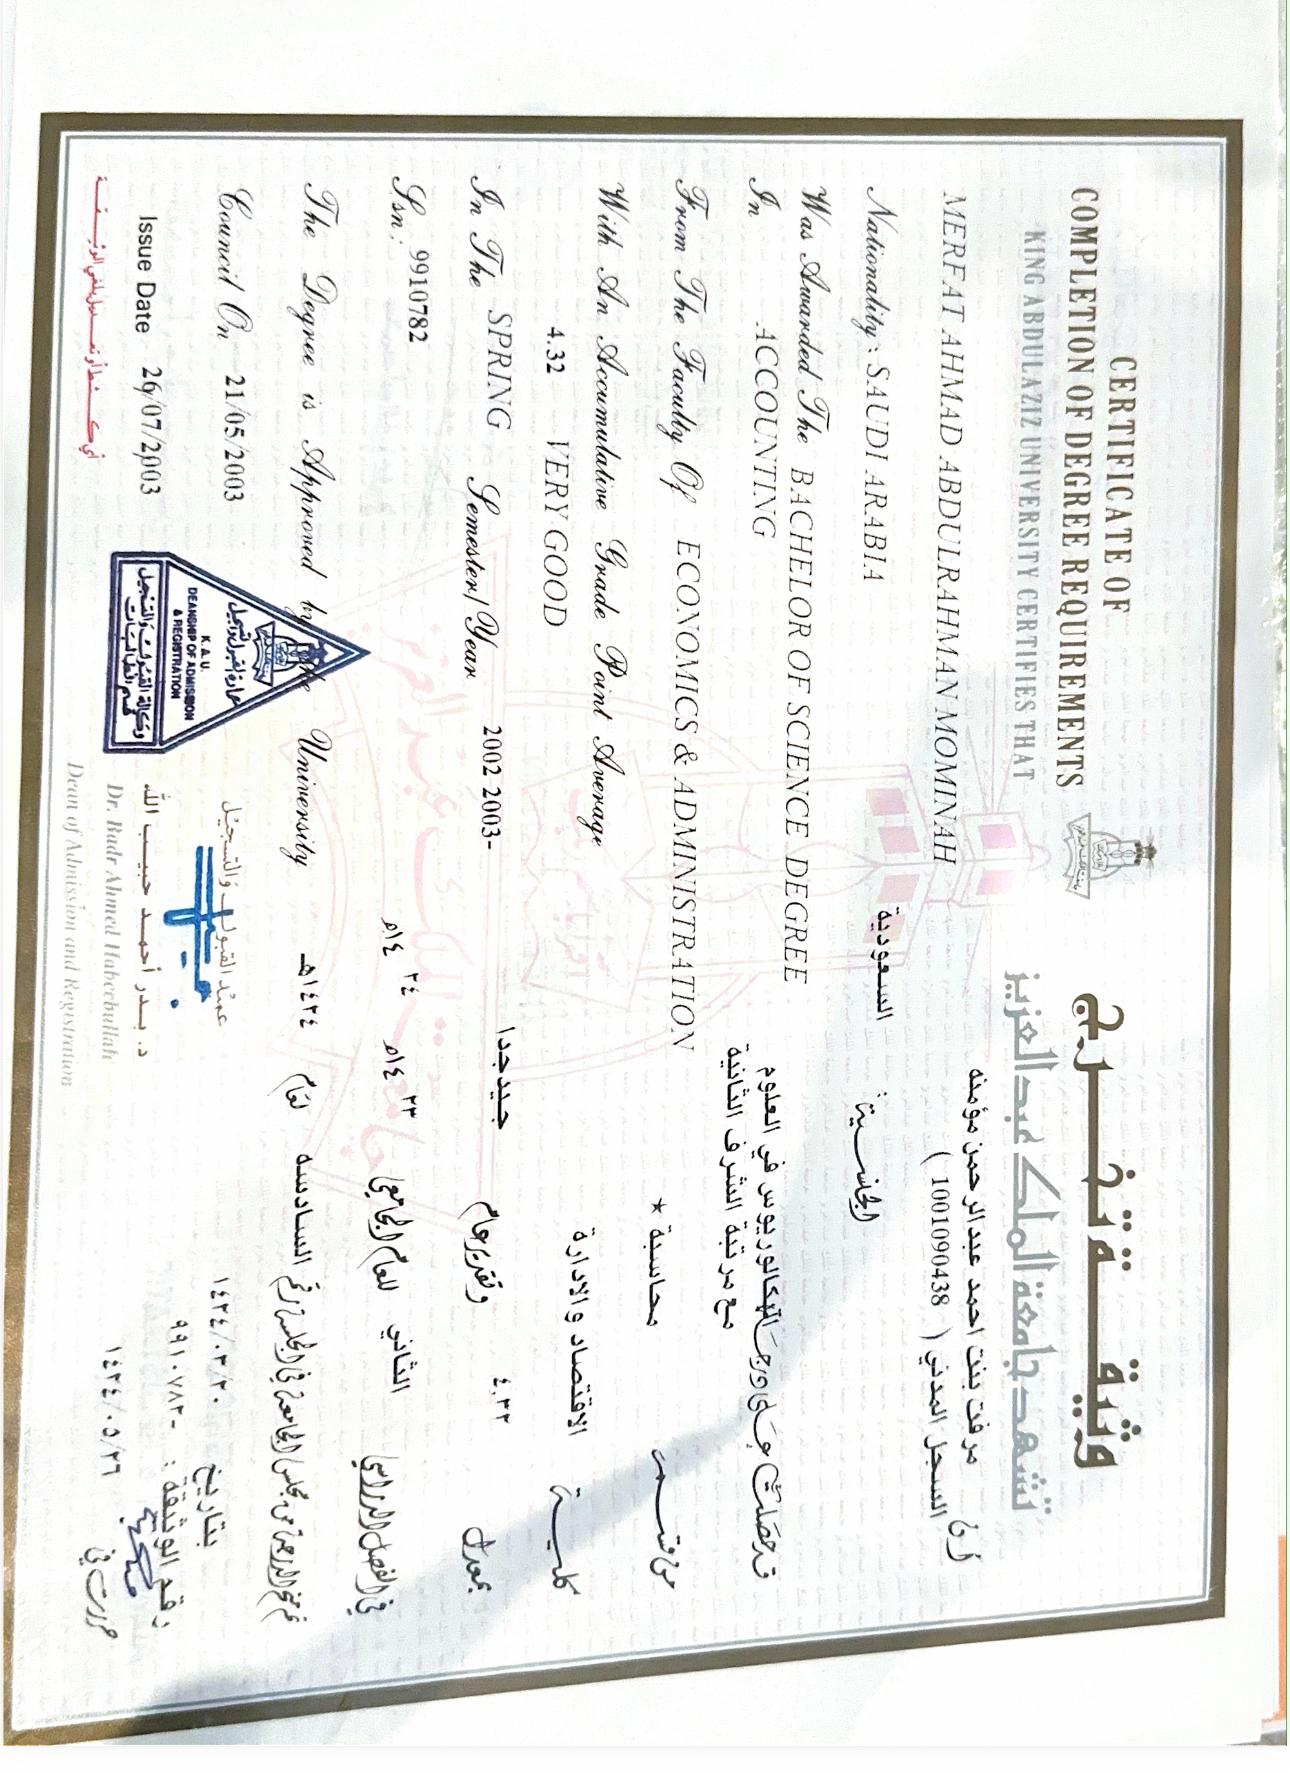 CERTIFICATE OF
COMPLETION OF DEGREE REQUIREMENTS
KING ABDULAZIZ UNIVERSITY CERTIFIES THAT
MERFAT AHMAD ABDULRAHMAN MOMINAH
Nationality : SAUDI ARABIA
Was Awarded The BACHELOR OF SCIENCE DEGREE
In ACCOUNTING
From The Faculty Of ECONOMICS & ADMINISTRATION
With An Accumulative Grade Point Average
4.32 VERY GOOD
In The SPRING Semester/Year 2002 2003-
Ssn: 9910782
The Degree is Approved by the University
Council On 21/05/2003
Issue Date 26/07/2003
أي كشط أو تعديل يلغي الوثيقة
عمادة القبول والتسجيل
K.A.U.
DEANSHIP OF ADMISSION
& REGISTRATION
وكالة القبول والتسجيل
قسم الطالبات
وثيقة تخرج
تشهد جامعة الملك عبدالعزيز
أن مرفت بنت احمد عبدالرحمن مؤمنه
السجل المدني ( 1001090438 )
الجنسية : السعودية
قد حصلت على درجة البكالوريوس في العلوم
مع مرتبة الشرف الثانية
من قسم محاسبة *
كلية الاقتصاد والادارة
بمعدل ٤.٣٢ وتقدير عام جيد جدا
في الفصل الدراسي الثاني للعام الجامعي ٢٣ ١٤هـ ٢٤ ١٤هـ
تم منح الدرجة من مجلس الجامعة في الجلسة رقم السادسه لعام ١٤٢٤هـ
بتاريخ ١٤٢٤/٠٣/٢٠
رقم الوثيقة : ٩٩١٠٧٨٢-
حررت في ١٤٢٤/٠٥/٢٦
عميد القبول والتسجيل
د. بدر أحمد حبيب الله
Dr. Badr Ahmed Habeebullah
Dean of Admission and Registration